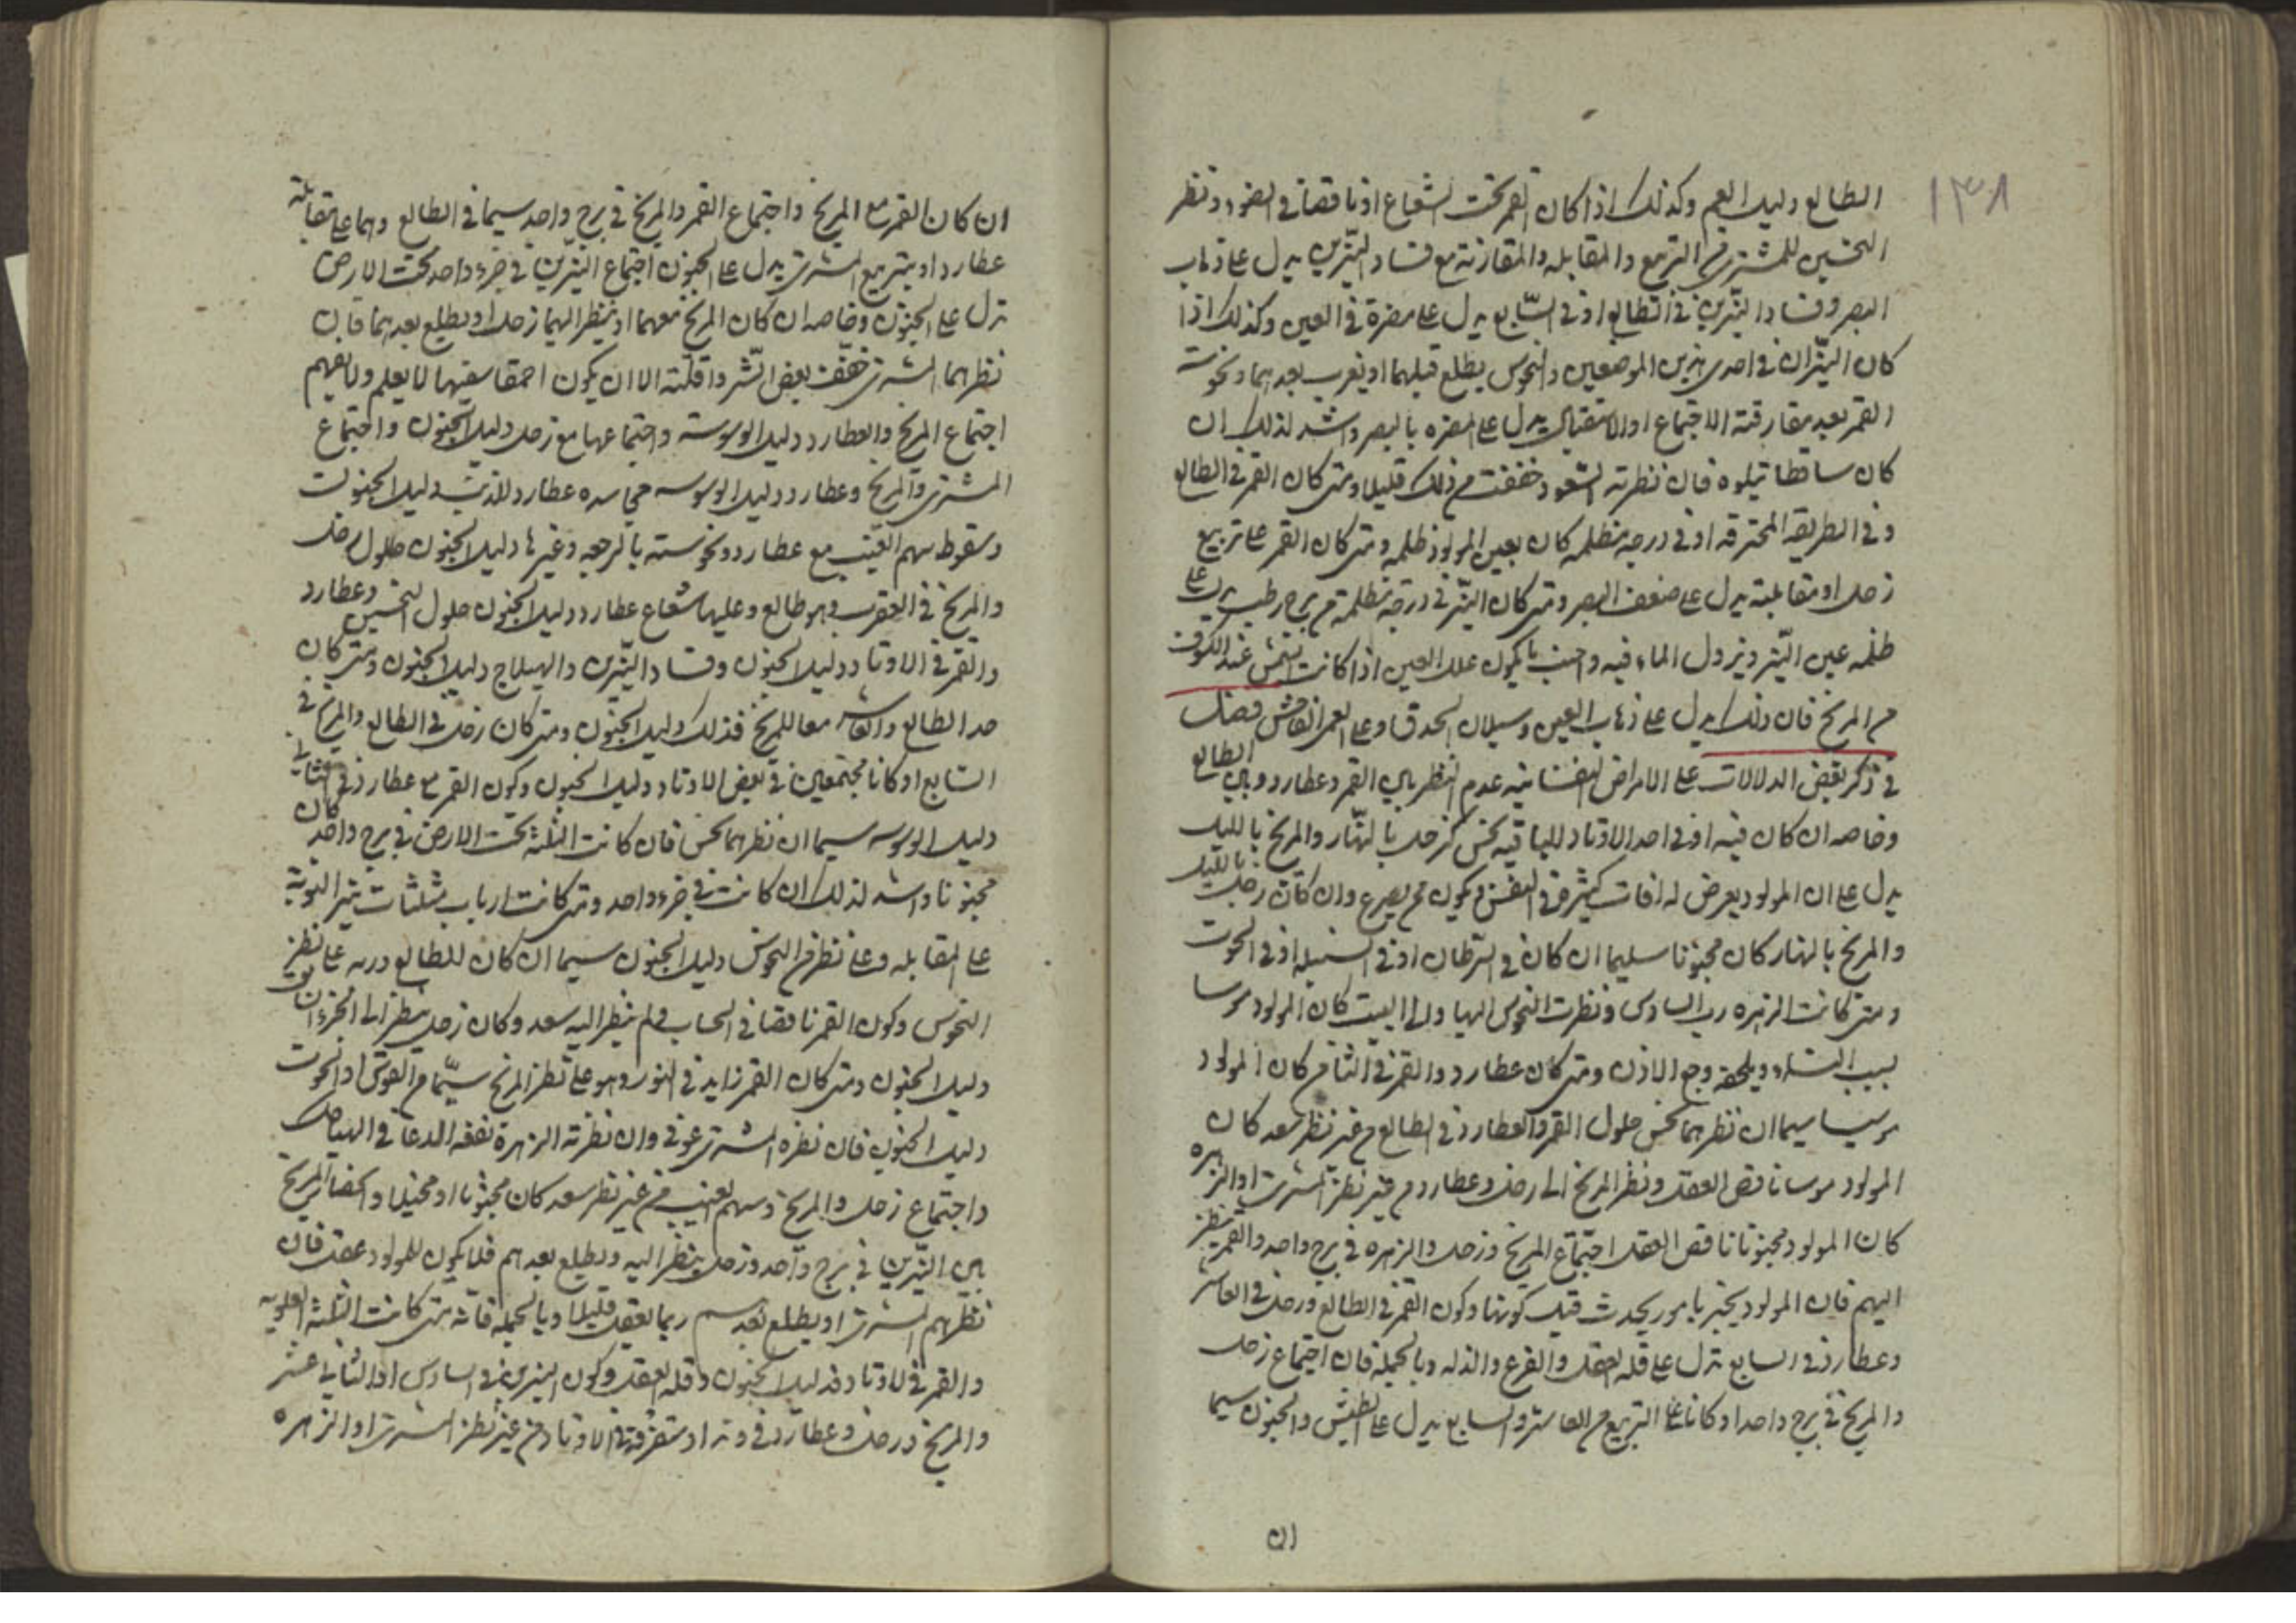 ١٣٨
الطالع دليل العمى وكذلك اذا كان القمر تحت الشعاع او ناقصا فى الضوء ونظر
النحسين للمشترى من التربيع والمقابله والمقارنة مع فساد النيّرين يدل على ذهاب
البصر وفساد النيّرين فى الطالع او فى السّابع يدل على مضرة فى العين وكذلك اذا
كان النيّران فى احدى هذين الموضعين والنحوس يطلع قبلهما او يغرب بعدهما ونحوسة
القمر بعد مفارقته الاجتماع او الاستقبال يدل على المضره بالبصر واشد لذلك ان
كان ساقطا تيلوه فان نظرته السّعود خففت من ذلك قليلا ومتى كان القمر فى الطالع
وفى الطريقه المحترقه او فى درجه مظلمه كان بعين المولود ظلمه ومتى كان القمر على تربيع
زحل او مقابلته يدل على ضعف البصر ومتى كان النيّر فى درجة مظلمة من برج رطب يدل على
ظلمه عين النيّر ونزول الماء فيه واخبث ما يكون علل العين اذا كانت الشمس عند الكسوف
من المريخ فان ذلك يدل على ذهاب العين وسيلان الحدق او على العمى الفاحش فصل
فى ذكر بعض الدلالات على الامراض النفسانيه عدم النظر بين القمر وعطارد وبين الطالع
وخاصه ان كان فيه او فى احد الاوتاد الباقيه نحس كزحل بالنهّار والمريخ بالليل
يدل على ان المولود يعرض له افات كثيرة فى النفس ويكون ممن يصرع وان كان زحل بالليل
والمريخ بالنهار كان مجنونا سليما ان كان فى السرطان او فى السنبله او فى الحوت
ومتى كانت الزهره رب السادس ونظرت النحوس اليها والى البيت كان المولود موسوسا
بسبب النساء ويلحقه وجع الاذن ومتى كان عطارد والقمر فى الثامن كان المولود
سيما ان نظرهما نحس حلول القمر والعطارد فى الطالع من غير نظر سعد كان
المولود موسوسا ناقص العقل ونظر المريخ الى زحل وعطارد من غير نظر المشترى او الزهره
كان المولود مجنونا ناقص العقل اجتماع المريخ وزحل والزهره فى برج واحد والقمر ينظر
اليهم فان المولود يخبر بامور يحدث قبل كونها وكون القمر فى الطالع وزحل فى العاشر
وعطارد فى السابع تدل على قلة العقل والفزع والذله وبالجمله فان اجتماع زحل
والمريخ فى برج واحد او كانا على التربيع من العاشر والسابع يدل على الطيش والجنون سيما
ان
ان كان القمر مع المريخ واجتماع القمر والمريخ فى برج واحد سيما فى الطالع وهما على مقابلة
عطارد او بتربيع المشترى يدل على الجنون اجتماع النيّرين فى جزء واحد تحت الارض
تدل على الجنون وخاصه ان كان المريخ معهما او ينظر اليهما زحل او يطلع بعدهما فان
نظرهما المشترى خفّف بعض الشّر واقلّته الا ان يكون احمقا سفيها لا يعلم ولا يفهم
اجتماع المريخ والعطارد دليل الوسوسة واجتماعهما مع زحل دليل الجنون واجتماع
المشترى والمريخ وعطارد دليل الوسوسه عطارد للذنب دليل الجنون
وسقوط سهم الغيب مع عطارد ونحوسته بالرجعه وغيرها دليل الجنون حلول زحل
والمريخ فى العقرب وهو طالع وعليها شعاع عطارد دليل الجنون حلول النحسين وعطارد
والقمر فى الاوتاد دليل الجنون وفساد النيّرين والهيلاج دليل الجنون ومتى كان
حد الطالع والعاشر معا للمريخ فذلك دليل الجنون ومتى كان زحل فى الطالع والمريخ فى
السّابع او كانا مجتمعين فى بعض الاوتاد دليل الجنون وكون القمر مع عطارد فى
دليل الوسوسه سيما ان نظرهما نحس فان كانت الثلثه تحت الارض فى برج واحد كان
مجنونا واشد لذلك ان كانت فى جزء واحد ومتى كانت ارباب مثلثات نيّر النوبة
على المقابله وعلى نظر من النحوس دليل الجنون سيما ان كان للطالع على نظر من
النحوس وكون القمر ناقصا فى الحساب ولم ينظر اليه سعد وكان زحل ينظر الى الجزء
دليل الجنون ومتى كان القمر زايد فى النور وهو على نظر المريخ سيّما من القوس او الحوت
دليل الجنون فان نظره المشترى عوفى وان نظرته الزهرة نفعه الدعا فى الهياكل
واجتماع زحل والمريخ وسهم الغيب من غير نظر سعد كان مجنونا او مخبلا والمريخ
بين النيّرين فى برج واحد وزحل ينظر اليه ويطلع بعدهم فلا يكون للمولود عقل فان
نظرهم المشترى او يطلع بعدهم ربما يعقل قليلا وبالجمله فانّه متى كانت الثلثه العلويه
والقمر فى الاوتاد فدليل الجنون وقله العقل وكون النيرين فى السادس او الثانى عشر
والمريخ وزحل وعطارد فى وتد او متفرقة فى الاوتاد من غير نظر المشترى او الزهره